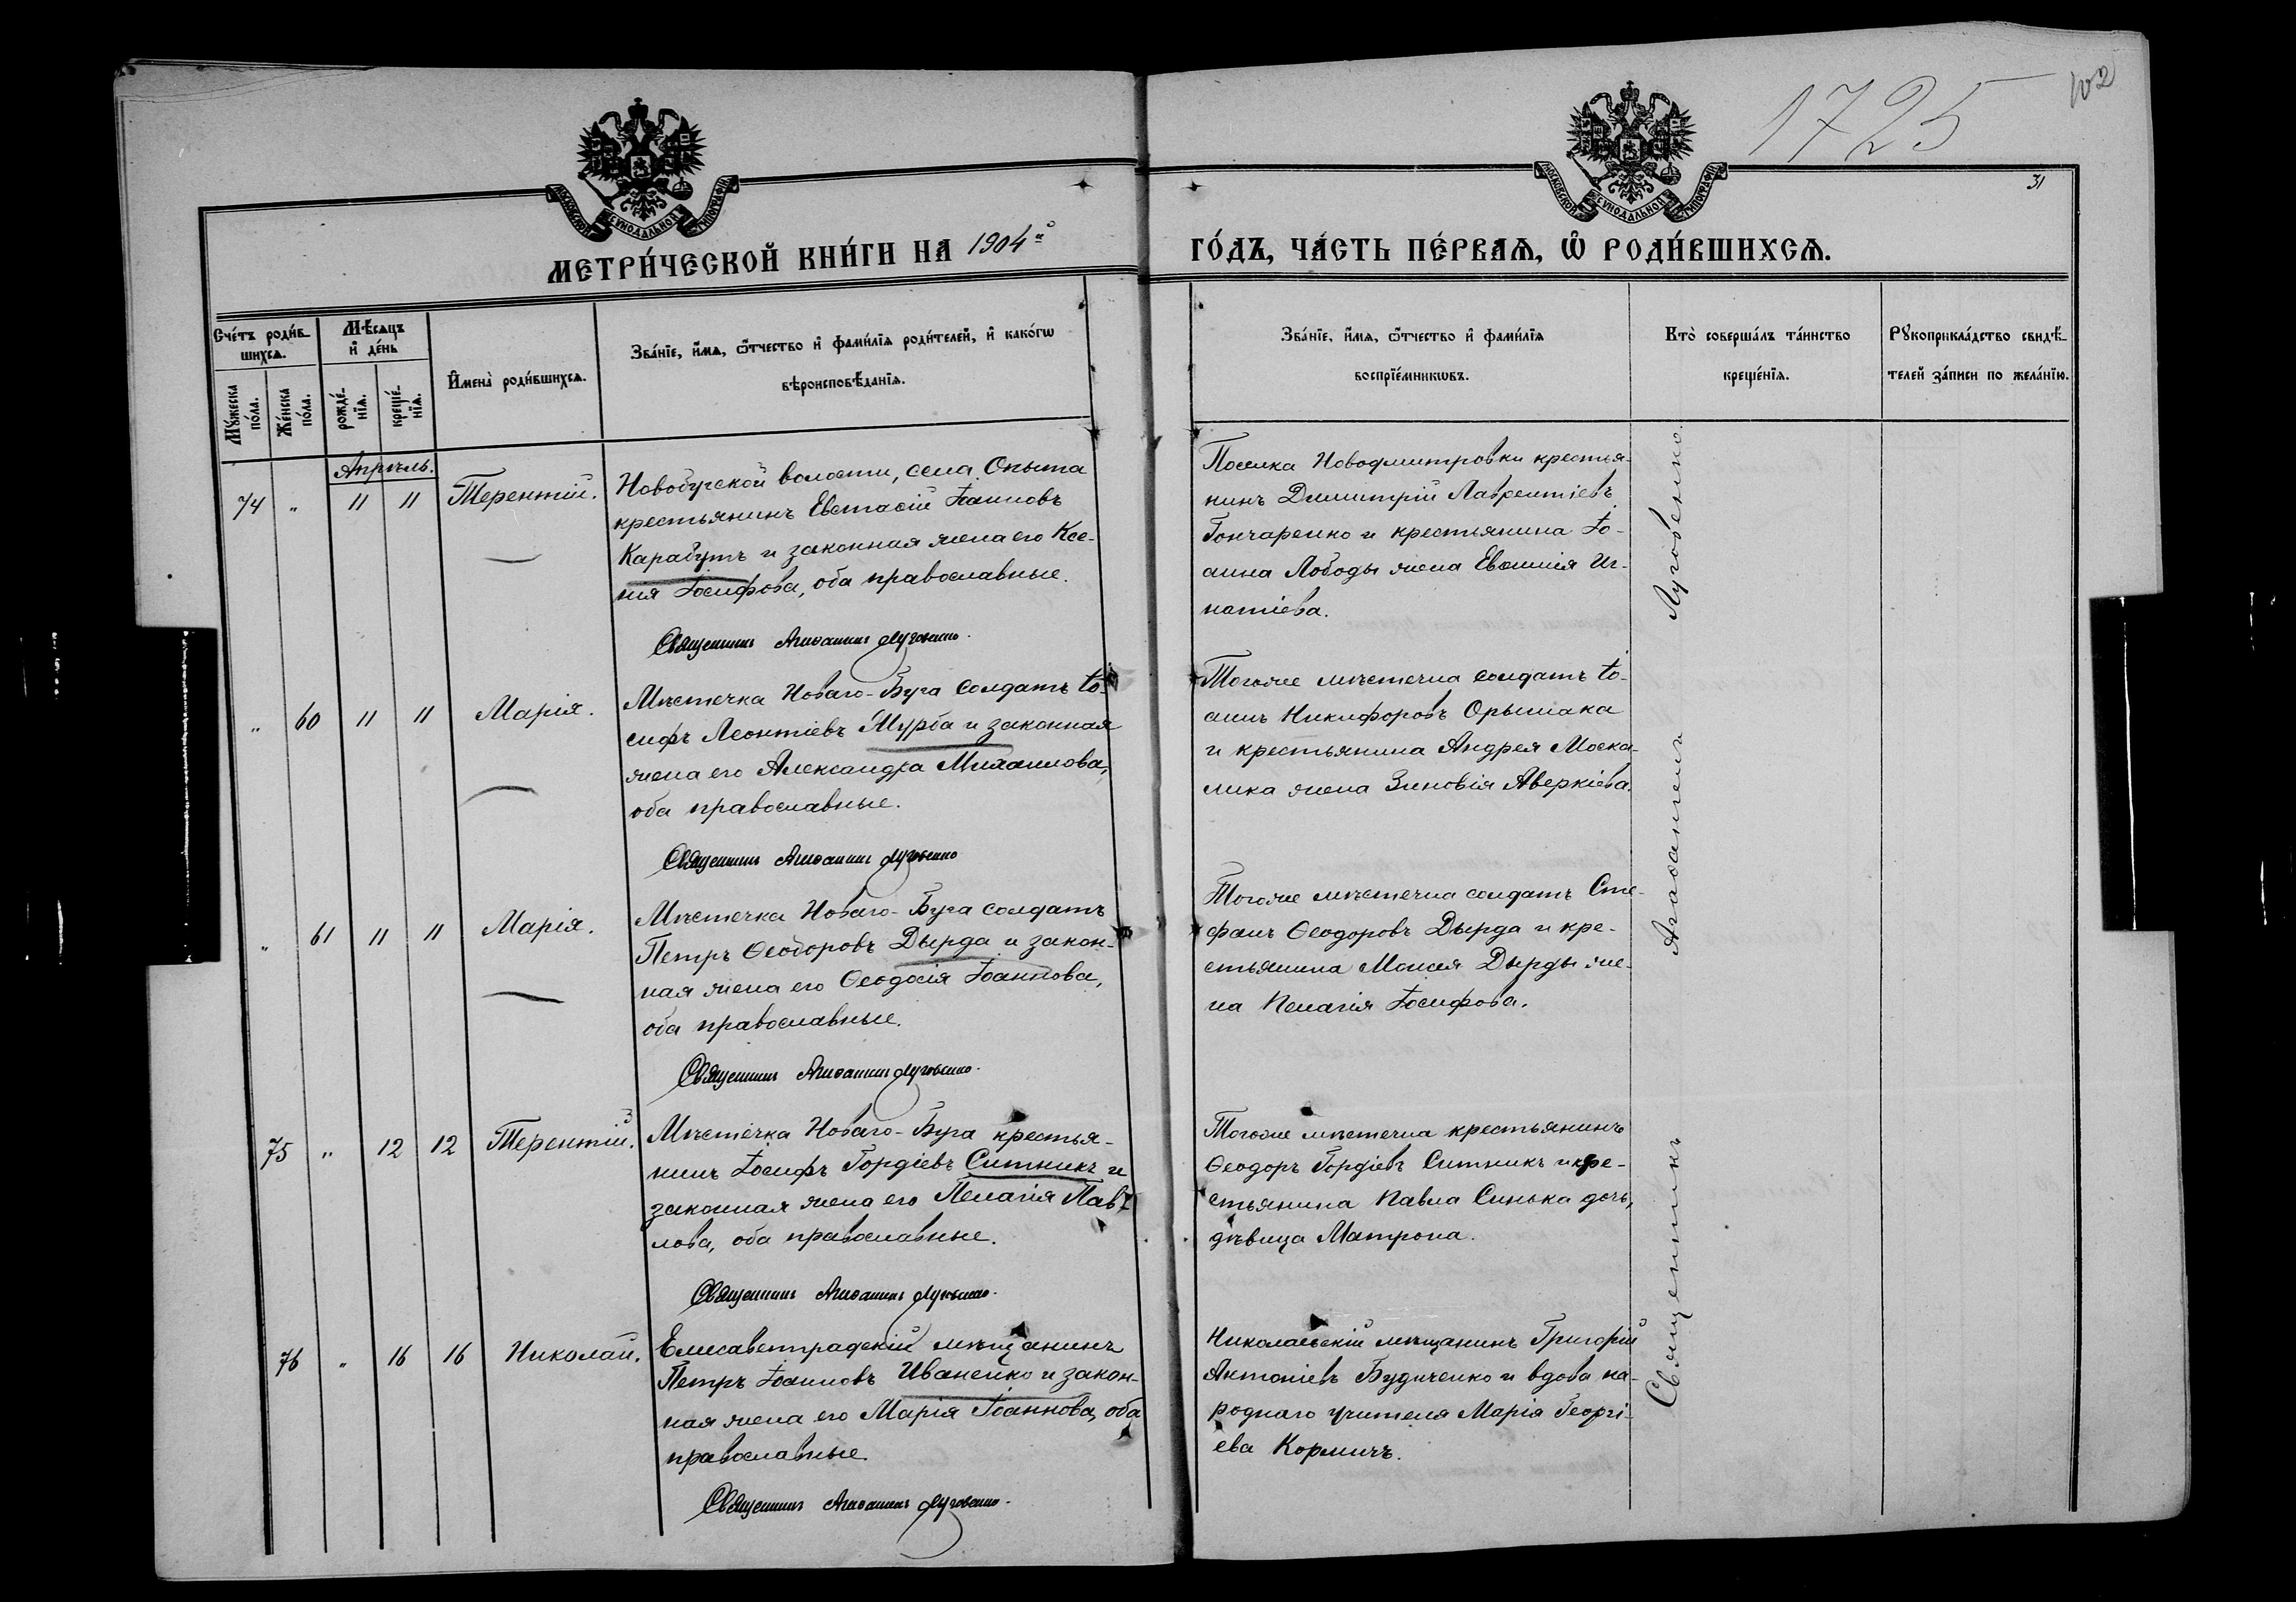 1725
102
31
МОСКОВСКОЙ СѴНОДАЛЬНОЙ ТИПОГРАФІИ
МОСКОВСКОЙ СѴНОДАЛЬНОЙ ТИПОГРАФІИ
МЕТРИ́ЧЕСКОЙ КНИ́ГИ НА 1904й
ГО́ДЪ, ЧА́СТЬ ПЕ́РВАѦ, Ѡ҆ РОДИ́ВШИХСѦ.
Сче́тъ роди́в-
шихсѧ.
Мꙋ́жеска
по́ла.
Же́нска
по́ла.
Мѣ́сѧцъ
и҆ де́нь
рожде́-
нїѧ.
креще́-
нїѧ.
И҆мена̀ роди́вшихсѧ.
Зва́нїе, и҆́мѧ, ѻ҆́тчество и҆ фами́лїѧ роди́телей, и҆ како́гѡ
вѣроисповѣ́данїѧ.
Зва́нїе, и҆́мѧ, ѻ҆́тчество и҆ фами́лїѧ
воспрїе́мникѡвъ.
Кто̀ соверша́лъ та́инство
креще́нїѧ.
Рꙋкоприкла́дство свидѣ́-
телей за́писи по жела́нїю.
Апрѣль.
74 „ 11 11 Терентій.
Новобугской волости, села Опыта
крестьянинъ Евстасій Іоанновъ
Карабутъ и законная жена его Ксе-
нія Іосифова, оба православные.
Священникъ Агаѳангелъ Луговенко.
Поселка Новодмитровки крестья-
нинъ Димитрій Лаврентіевъ
Гончаренко и крестьянина Іо-
анна Лободы жена Евѳимія Иг-
натіева.
„ 60 11 11 Марія.
Мѣстечка Новаго-Буга солдатъ Іо-
сифъ Леонтіевъ Мурба и законная
жена его Александра Михаилова,
оба православные.
Священникъ Агаѳангелъ Луговенко
Тогоже мѣстечка солдатъ Іо-
аннъ Никифоровъ Орышака
и крестьянина Андрея Моска-
лика жена Зиновія Аверкіева.
„ 61 11 11 Марія.
Мѣстечка Новаго-Буга солдатъ
Петръ Ѳеодоровъ Дырда и закон-
ная жена его Ѳеодосія Іоаннова,
оба православные.
Священникъ Агаѳангелъ Луговенко.
Тогоже мѣстечка солдатъ Сте-
фанъ Ѳеодоровъ Дырда и кре-
стьянина Моисея Дырды же-
на Пелагія Іосифова.
75 „ 12 12 Терентій.
Мѣстечка Новаго-Буга крестья-
нинъ Іосифъ Гордіевъ Ситникъ и
законная жена его Пелагія Пав-
лова, оба православные.
Священникъ Агаѳангелъ Луговенко.
Тогоже мѣстечка крестьянинъ
Ѳеодоръ Гордіевъ Ситникъ и кре-
стьянина Павла Синька дочь,
дѣвица Матрона.
76 „ 16 16 Николай.
Елисаветградскій мѣщанинъ
Петръ Іоанновъ Иваненко и закон-
ная жена его Марія Іоаннова, оба
православные
Священникъ Агаѳангелъ Луговенко.
Николаевскій мѣщанинъ Григорій
Антоніевъ Будниченко и вдова на-
роднаго учителя Марія Георгі-
ева Кормичъ.
Священникъ Агаѳангелъ Луговенко.